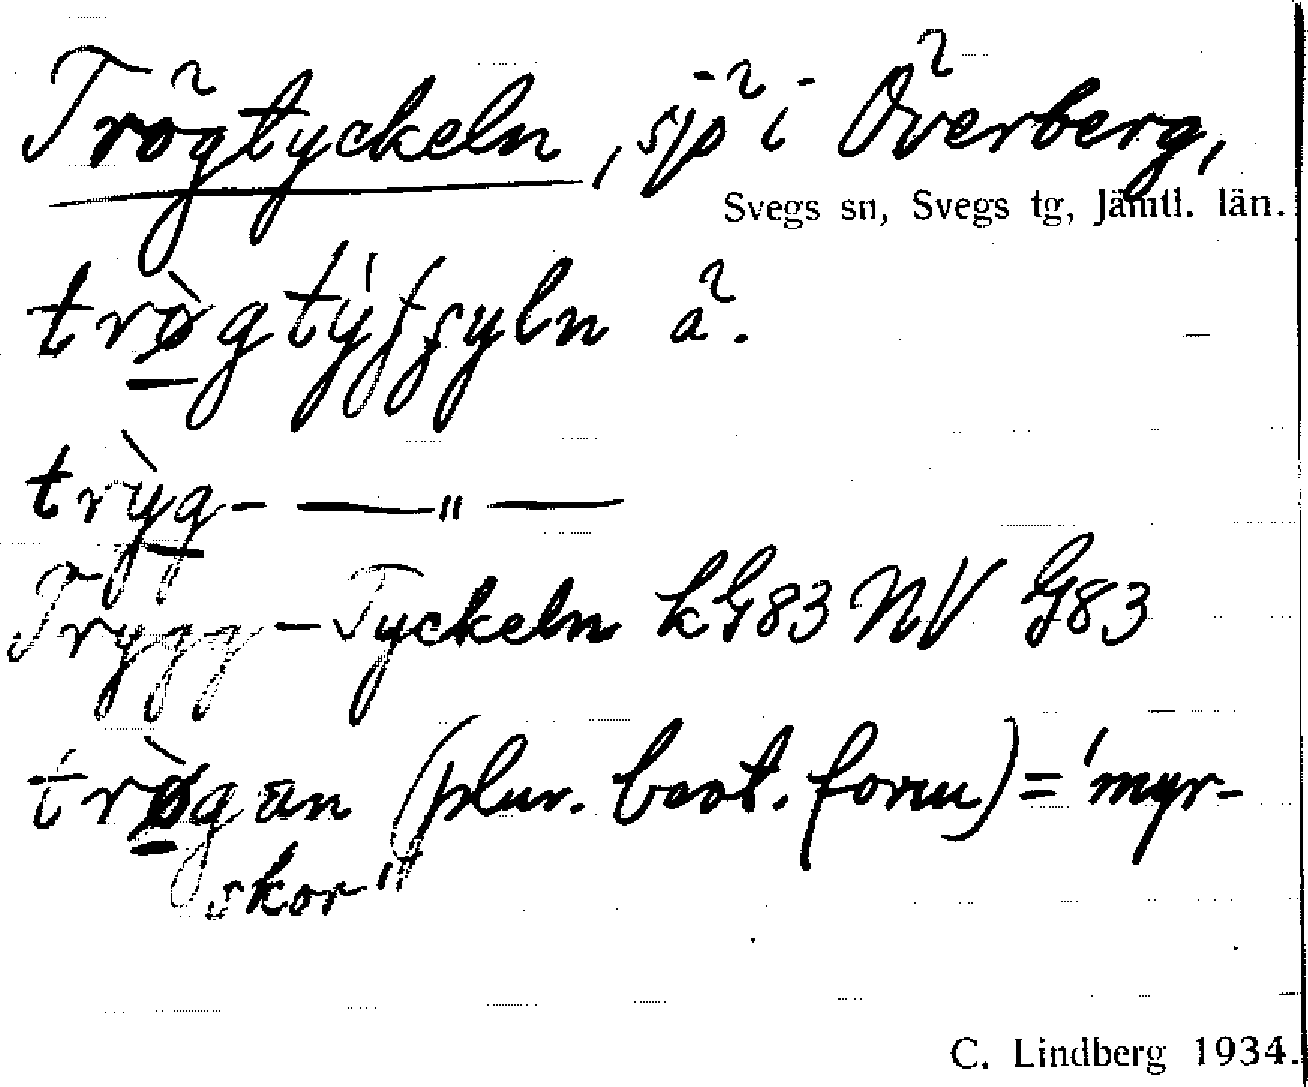 Trögtyckeln, sjö i Överberg,
Svegs sn, Svegs tg, Jämtl. län.
trø̀gtý ʃʂyln ã.
trỳg- —— " ——
Trygg-Tyckeln kG83 NV G83
trø̀gan (plur. best. form) = 'myr-
skor"
C. Lindberg 1934.